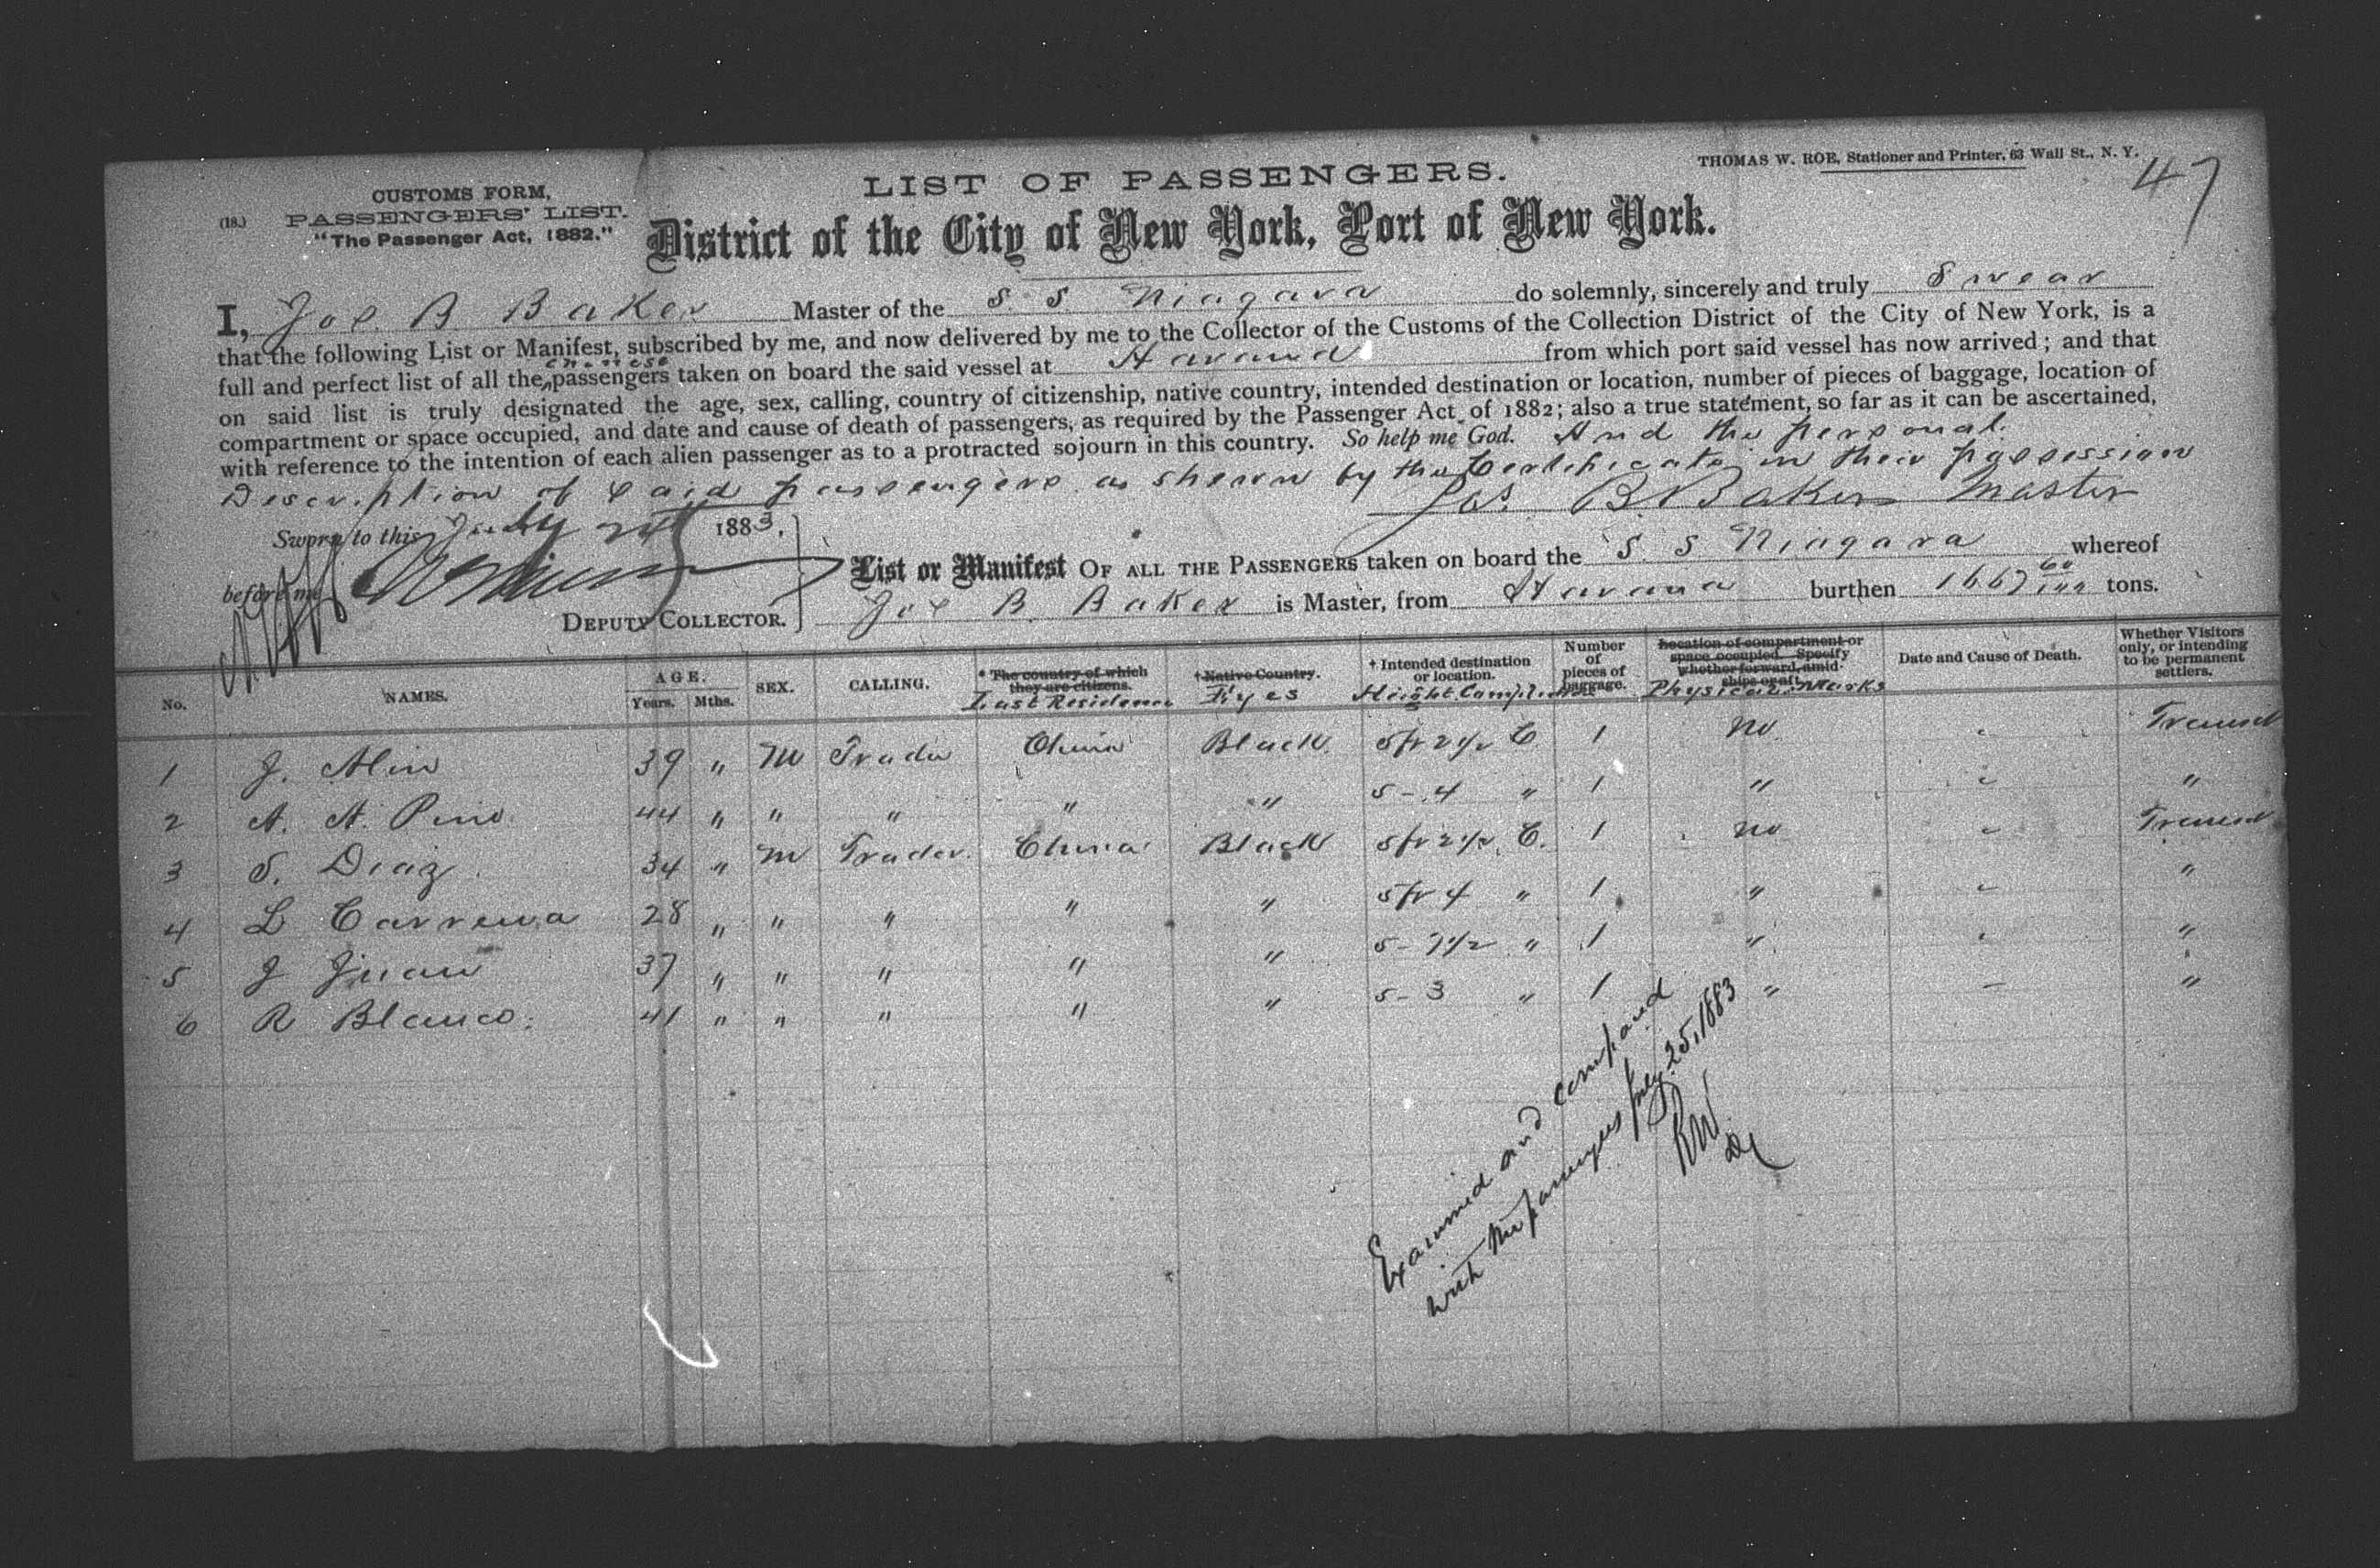 THOMAS W. ROE, Stationer and Printer, 63 Wall St., N. Y.
47
CUSTOMS FORM,
(18.) PASSENGERS' LIST.
"The Passenger Act, 1882."
LIST OF PASSENGERS.
District of the City of New York, Port of New York.
I, Jos. B Baker Master of the S. S. Niagara do solemnly, sincerely and truly Swear
that the following List or Manifest, subscribed by me, and now delivered by me to the Collector of the Customs of the Collection District of the City of New York, is a
Chinese
full and perfect list of all the passengers taken on board the said vessel at Havana from which port said vessel has now arrived; and that
on said list is truly designated the age, sex, calling, country of citizenship, native country, intended destination or location, number of pieces of baggage, location of
compartment or space occupied, and date and cause of death of passengers, as required by the Passenger Act of 1882; also a true statement, so far as it can be ascertained,
with reference to the intention of each alien passenger as to a protracted sojourn in this country. So help me God. And the personal
Description of Said passengers as shewn by the Certificate in their possession
Jas. B. Baker Master
Sworn to this July 24 1883,
before me
DEPUTY COLLECTOR.
List or Manifest OF ALL THE PASSENGERS taken on board the S. S Niagara whereof
Jos B. Baker is Master, from Havana burthen 1667 60/100 tons.
No. NAMES. AGE. Years. Mths. SEX. CALLING. * The country of which they are citizens. Last Residence † Native Country. Eyes † Intended destination or location. Height Complexion Number of pieces of baggage. Location of compartment or space occupied. Specify whether forward, amidships or aft. Physical Marks Date and Cause of Death. Whether Visitors only, or intending to be permanent settlers.
1 J. Alin 39 " M Trader China Black 5 ft 2 1/2 C 1 no - Transit
2 A. A. Pino 44 " " " " " 5 - 4 " 1 " - "
3 S. Diaz 34 " M Trader China Black 5 ft 2 1/2 C. 1 no - Transit
4 L 28 " " " " " 5 ft 4 " 1 " - "
5 J Juan 37 " " " " " 5 - 7 1/2 " 1 " - "
6 R Blanco. 41 " " " " " 5 - 3 " 1 " - "
Examined and compared
with the passengers July 25, 1883
RW